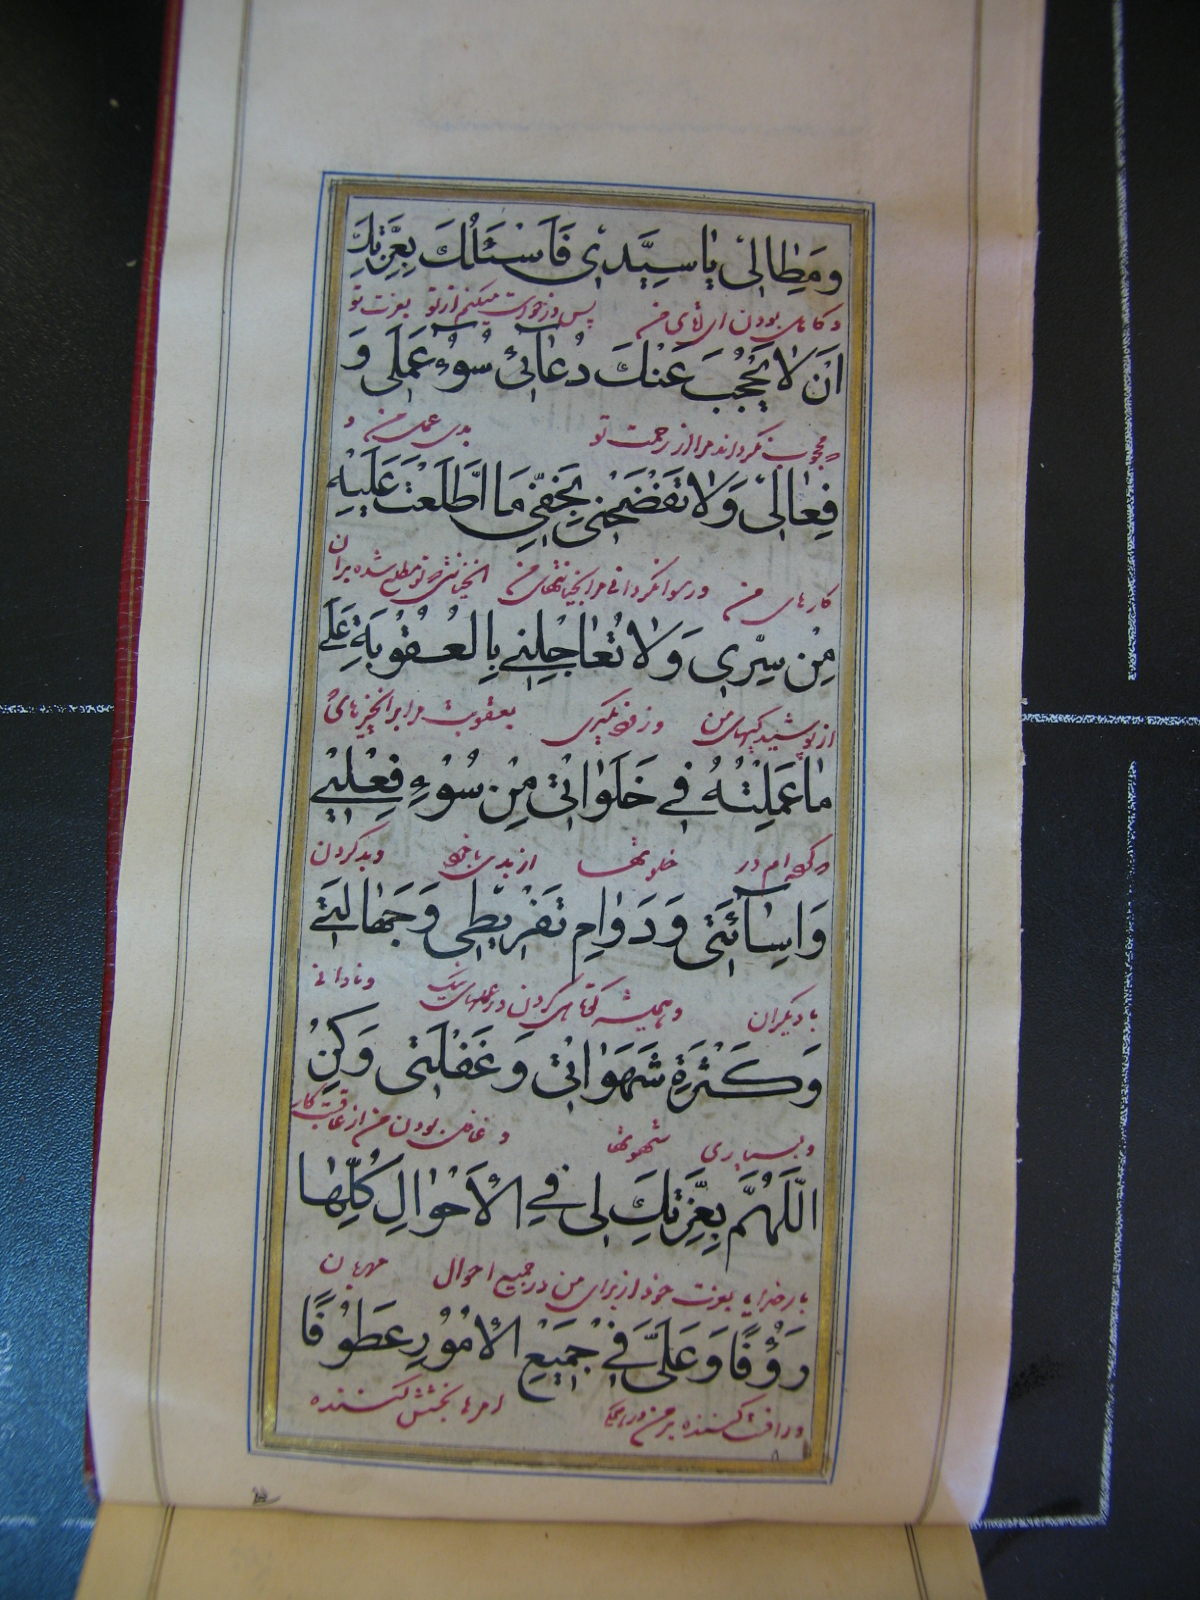 وَمَطِالىٖ يٰا سَيِّدىٖ فَاَسْئَلُكَ بِعِزَّتِكَ
بودن ای اقای من پس درخواست میکنم از تو بعزت تو
اَنْ لاٰ يَحْجُبَ عَنْكَ دُعاٰئىٖ سُوۤءُ عَمَلىٖ وَ
محجوب نگرداند مرا از رحمت تو بدی عمل من و
فِعاٰلىٖ وَلاٰ تَفْضَحْنىٖ بِخَفِيِّ مَا اطَّلَعْتَ عَلَيْهِ
کارهای من و رسوا نگردانی مرا بخیانتهای من مطلع شده بران
مِنْ سِرّىٖ وَلاٰ تُعاٰجِلْنىٖ بِالْعُقُوبَةِ عَلىٰ
از پوشیدگیهای من و زود نگیری بعقوبت مرا بر انچیزهای
ماٰعَمِلْتُهُ فىٖ خَلَوٰاتىٖ مِنْ سُوۤءِ فِعْلىٖ
که کرده ام در خلوتها از بدی با خود و بد کردن
وَاِسٰاۤئَتىٖ وَدَوٰامِ تَفْريٖطىٖ وَجَهٰالَتىٖ
با دیگران و همیشه کوتاهی کردن در عملهای نیک و نادانی
وَكَثْرَةِ شَهَوٰاتىٖ وَغَفْلَتىٖ وَكُنِ
و بسیاری شهوتها و غافل بودن من از عاقبت کار
اللّٰهُمَّ بِعِزَّتِكَ لىٖ فىِ الْاَحْوٰالِ كُلِّهٰا
بار خدایا بعزت خود از برای من در جمیع احوال مهربان
رَؤُفًا وَعَلَىَّ فىٖ جَميٖعِ الْاُمُورِ عَطُوفًا
و رافت کننده بر من در همه امرها بخشش کننده